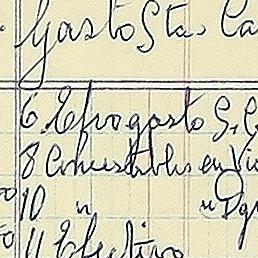 Gasto Sta. Ca
6. Efvogasto S. C
8 Comestibles en Vi
10 " " Dg
11 Efectivo